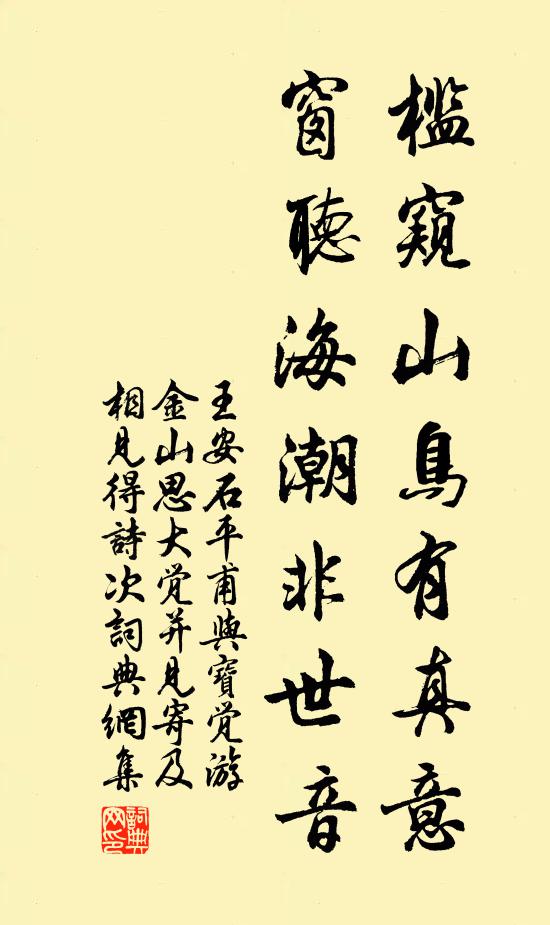 檻窺山鳥有真意
窗聽海潮非世音
王安石平甫與寶覺游
金山思大覺并見寄及
相見得詩次詞典網集
詞典
网印